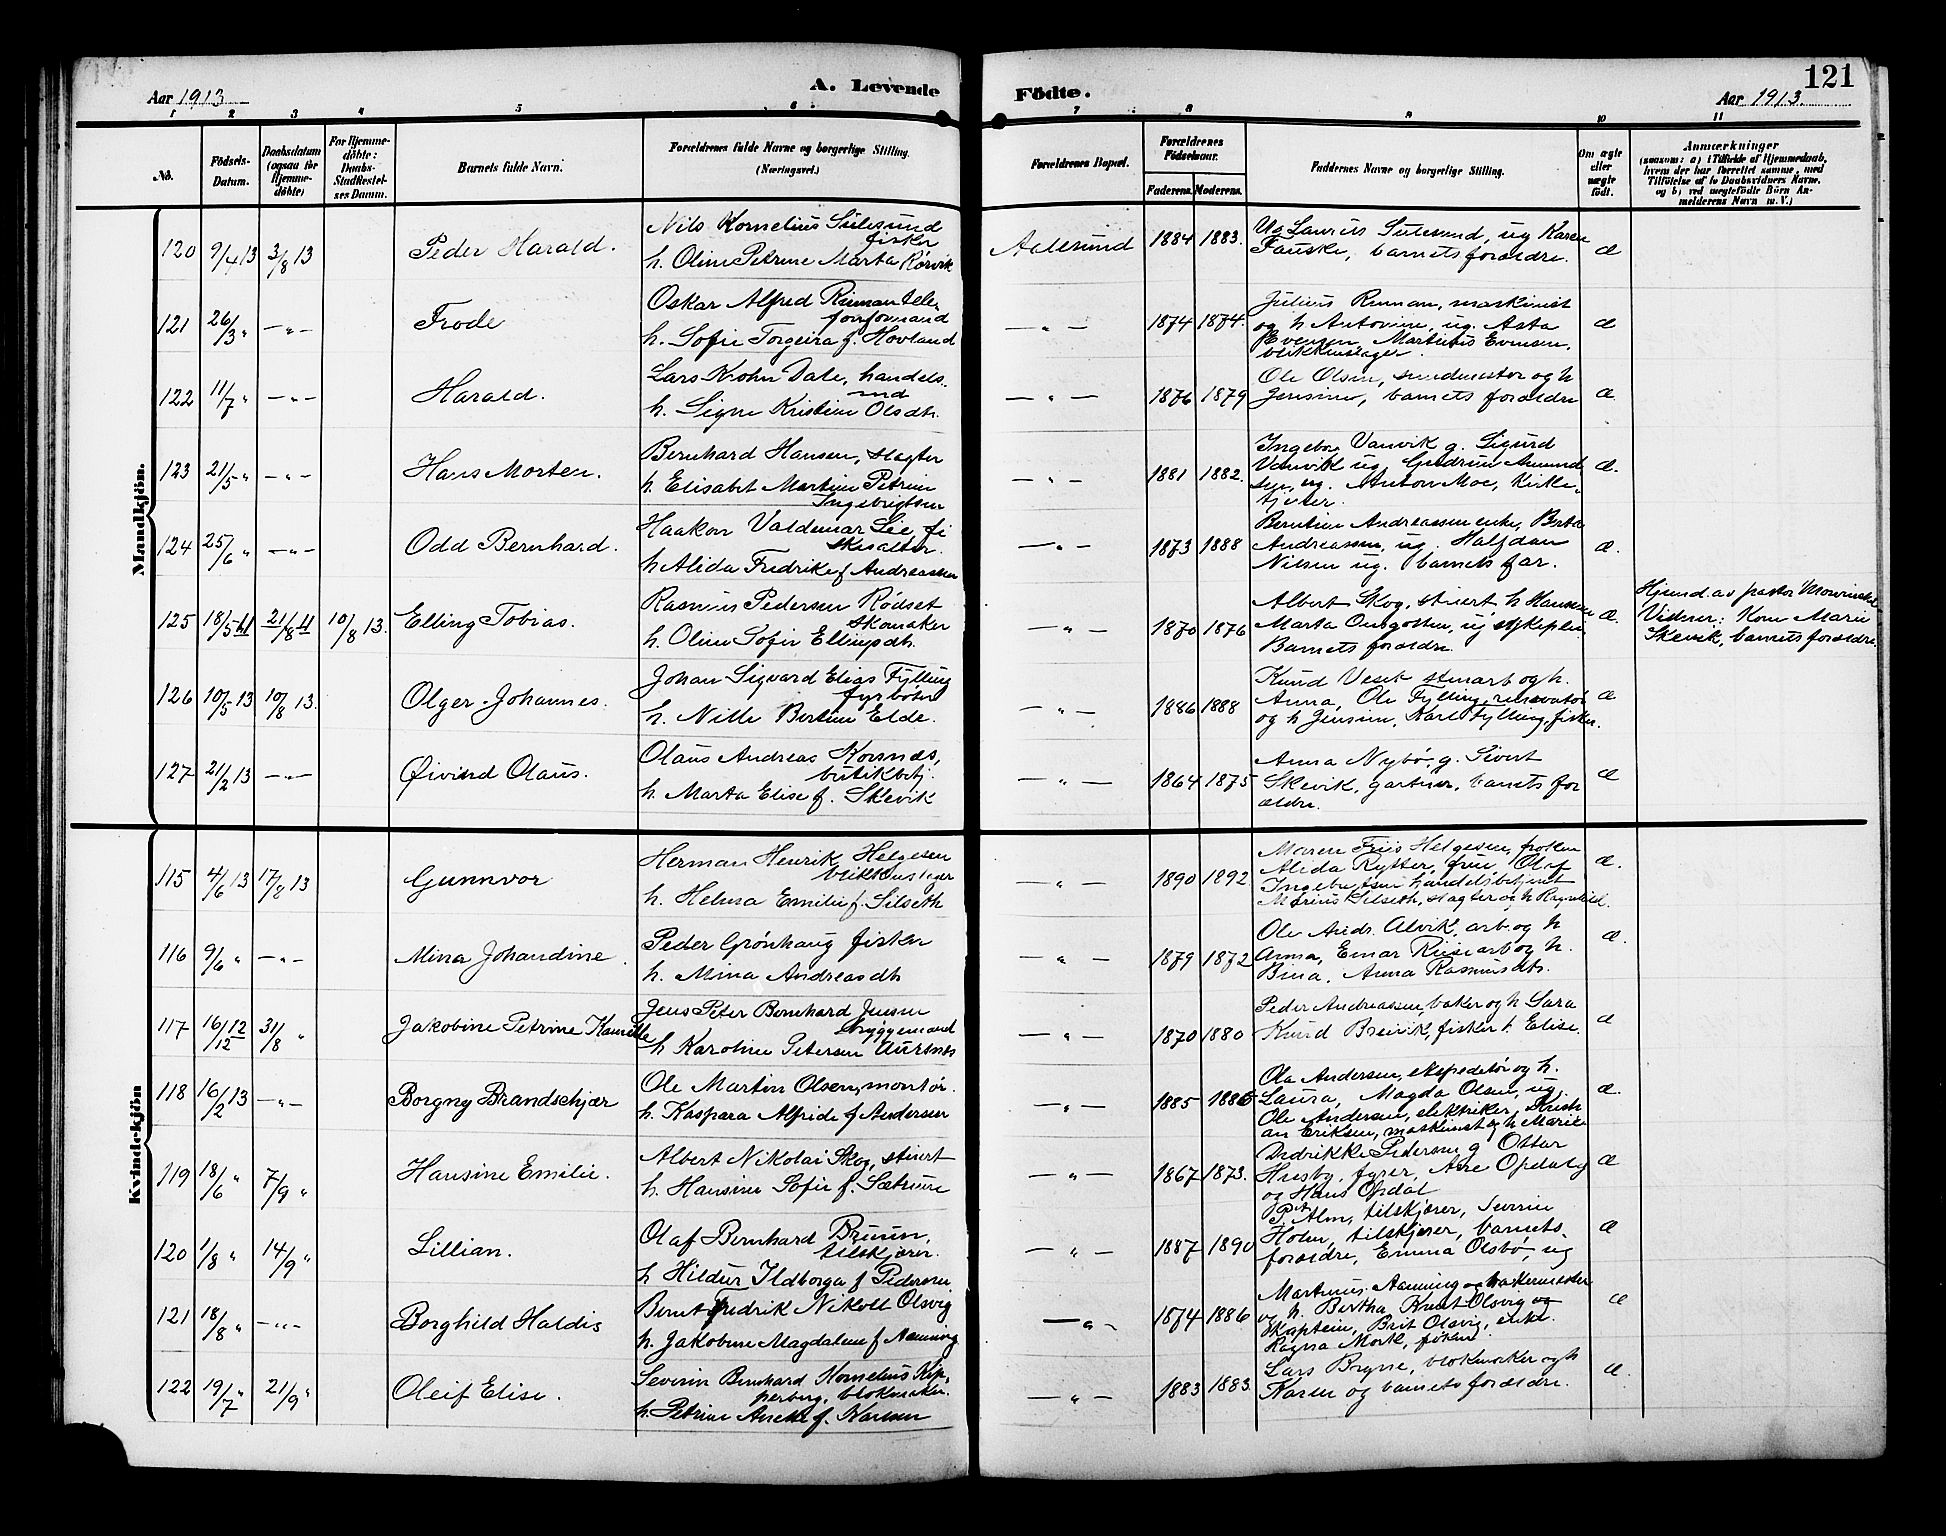 121
Aar 1913
A. Levende
Födte.
Aar 1913
1 2 3 4 5 6 7 8 9 10 11
No.
Födsels-Datum.
Daabsdatum (ogsaa for Hjemme-døbte)
For Hjemme-døbte: Daabs-Stadfæstelses Datum.
Barnets fulde Navn.
Forældrenes fulde Navne og borgerlige Stilling.
(Næringsvei.)
Forældrenes Bopæl.
Forældrenes Födselsaar.
Faderens. Moderens.
Faddernes Navne og borgerlige Stilling.
Om ægte eller uægte födt.
Anmærkninger
(saasom: a) i Tilfælde af Hjemmedaab, hvem der har forrettet samme, med Tilföielse af to Daabsvidners Navne, og b) ved uægtefödte Börn Anmelderens Navn m. V.)
Mandkjön.
120 9/4 13 3/8 13 Peder Harald.
Nils Kornelius Sulesund
fisker
h. Oline Petrine Marta Rørvik
Aalesund 1884 1883.
Ug Laurus Sulesund, ug Karen
Fauske, barnets forældre. Æ
121 26/3 " — " — Frode
Oskar Alfred Riiman tele-
fonformand
h. Sofie Torgeira f. Hovland
— " — 1874 1874.
Julius Riiman, maskinist
og h Antonine, ug. Asta
Evensen, Martinus Evensen,
blikkenslager. Æ
122 11/7 " — " — Harald.
Lars Krohn Dale, handels-
md
h. Signe Kristine Olsdtr.
— " — 1876 1879
Ole Olsen, sundmester og h
Jensine, barnets forældre Æ.
123 21/5 " — " — Hans Morten.
Bernhard Hansen, slagter
h. Elisabet Martine Petrine
Ingebrigtsen
— " — 1881 1882.
Ingebor Vanvik g. Sigurd
Vanvik ug. Gudrun Amund
sen, ug. Anton Moe, kirke-
tjener. Æ.
124 25/6 " — " — Odd Bernhard.
Haakon Valdemar Lie, fi
skesalter.
h Alida Fredrikke f Andreassen
— " — 1873 1888
Berntine Andreassen enke, Berta
Andreassen, ug. Halfdan
Nilsen ug. barnets far. Æ.
125 18/5 11 21/8 11 10/8 13. Elling Tobias.
Rasmus Pedersen Rødset
skomaker
h. Oline Sofie Ellingsdtr.
— " — 1870 1876
Albert Skog, stuert, h Hansine
Marta ug sykeplei.
Barnets forældre. Æ.
Hjemd. av pastor Mowinckel
Vidner: Kone Marie
Skevik, barnets forældre.
126 10/5 13 10/8 13. Olger Johannes.
Johan Sigvard Elias Fylling
fyrbøter
h. Nille Bertine Elde.
— " — 1886 1888
Knud Vesek stuart og h.
Anna, Ole Fylling, reservatør
og h Jensine, Karl Fylling, fisker. Æ
127 21/2 13 — " — Øivind Olaus.
Olaus Andreas Korsnæs,
butikbetj.
h. Marta Elise f. Skevik
— " — 1864 1875
Anna Nybø, g. Sivert
Skevik, gartner, barnets for
ældre. Æ
Kvindekjön
115 4/6 13 17/8 13 Gunnvor
Herman Henrik Helgesen
blikkenslager
h. Helma Emilie f. Silseth
— " — 1890 1892
Maren Friis Helgesen, frøken
Alida Rytter, frue Olaf
Ingebrigtsen handelsbetjent
Marius Silseth, slagter og h Ragnhild. Æ.
116 9/6 " — " — Mina Johandine.
Peder Grønhaug fisker
h. Mina Andreasdtr
— " — 1879 1872
Ole Andr. Alvik, arb. og h.
Anna, Einar Riise arb og h.
Bina, Anna Rasmusdtr. Æ.
117 16/12 12 31/8 " Jakobine Petrine Kamilla
Jens Peter Bernhard Jensen
bryggemand
h Karoline Petersen Aursnes
— " — 1870 1880
Peder Andreassen, baker og h Sara
Knud Breivik, fisker h. Elise. Æ
118 16/2 13 — " — Borgny Brandschjær
Ole Martin Olsen, montør.
h. Kaspara Alfride f Andersen
— " — 1885 1886
Ole Andersen, ekspeditør og h.
Laura, Magda Olsen, ug,
Ole Andersen, elektriker, Kristi
an Eriksen, maskinist og h Marie Æ.
119 18/6 " 7/9 " Hansine Emilie.
Albert Nikolai Skog, stuert
h. Hansine Sofie f. Sætrene
— " — 1867 1873.
Didrikke Pedersen g Ottar
Husby, fyrer, Ane Opdal g
og Hans Opdal Æ
120 1/8 " 14/9 " Lillian.
Olaf Bernhard Bruun,
tilskjærer.
h Hildur Ildborga f Pedersen
— " — 1887 1890
P. A. Alm, tilskjærer, Severin
Holm, tilskjærer, barnets
forældre, Emma Olsbø, ug Æ
121 18/8 " — " — Borghild Haldis
Bernt Fredrik Nikolt Olsvig
h. Jakobine Magdalene f Aanning
— " — 1874 1886
Martinus Aanning og bakermester
og h. Bertha Knut Olsvig og
Kaptein, Brit Olsvig, enke.
Ragna Mork, frøken. Æ
122 19/7 " 21/9 " Oleif Elise.
Severin Bernhard Kornelius Kip-
perberg, blokmaker.
h. Petrine Anette f. Karlsen
— " — 1883 1883.
Lars Brynne, blokmaker og h
Karen og barnets forældre. Æ.